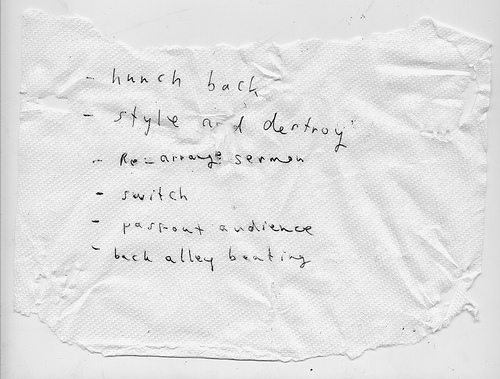 - hunch back
- style and destroy
- Re-arrange sermon
- switch
- pass-out audience
- back alley beating